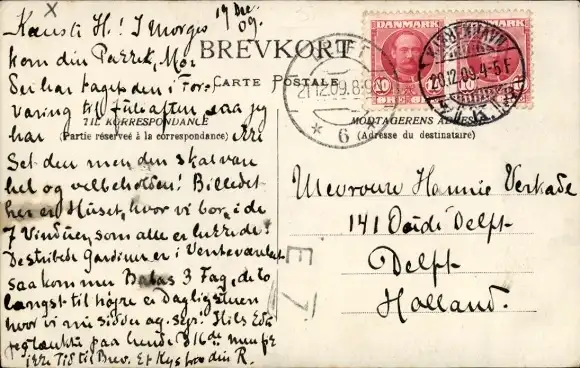 19 Dec.
09.
Kæreste H.! I Morges
kom din Pakke, Mor
har taget den i For-
varing til juleaften, saa jeg
har ikke
Set den men den skal være
hel og velbeholden! Billedet
her er Huset, hvor vi bor, i de
7 Vinduer, som alle er lukkede!
Gardiner er i
saa kommer Babas 3 Fag, de to
længst til højre er Dagligstuen
hvor vi nu sidder og syr. Hils
paa
ikke Tid til Brev. Et Kys fra din R.
BREVKORT
CARTE POSTALE
TIL KORRESPONDANCE
(Partie réservée à la correspondance)
MODTAGERENS ADRESSE
(Adresse du destinataire)
DANMARK
DANMARK
10 ØRE
10
KJØBENHAVN
20.12.09.4-5 F
DELFT
21.12.09.8-9
* 6 *
Mevrouw Hannie Verkade
141 Oude Delft
Delft
Holland.
E 7